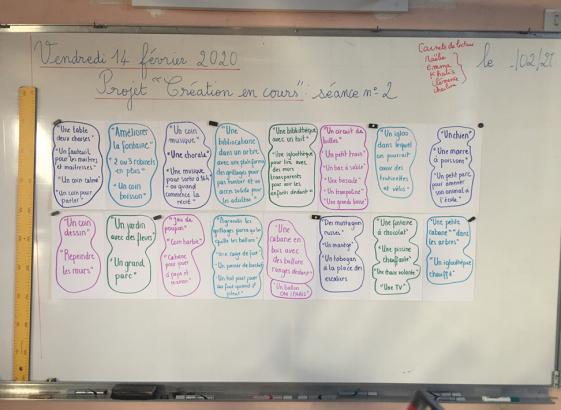 Vendredi 14 février 2020
Projet "Création en cours" : séance n° 2
Carnets de lecture
Emma
le /02/20
"Une table
deux chaises"
"Un fauteuil
pour les maîtres et
maîtresses"
"Un coin calme"
"Un coin pour
parler"
"Améliorer
la fontaine"
"2 ou 3 robinets
en plus"
"Un coin
boisson"
"Un coin
musique"
"Une chorale"
"Une musique
pour sortir à 16h
ou quand
commence la
récré"
"Une
bibliocabane
dans un arbre
avec une plateforme
des grillages pour
pas tomber et un
accès solide pour
les adultes"
"Une bibliothèque
avec un toit"
"Une igloothèque
pour lire avec
des murs
transparents
pour voir les
enfants dedans"
"Un circuit de
billes"
"Un petit train"
"Un bac à sable"
"Une bascule"
"Un trampoline"
"Une grande base"
"Un igloo
dans lequel
on pourrait
avoir des
trottinettes
et vélos"
"Un chien"
"Une mare
à poissons"
"Un petit parc
pour amener
un animal à
l'école"
"Un coin
dessin"
"Repeindre
les murs"
"Un jardin
avec des fleurs"
"Un grand
parc"
"Jeu de
poupon"
"Coin barbie"
"Cabane
pour jouer
à papa et
maman"
"Agrandir les
grillages parce qu'on
quille les ballons"
"Une cage de foot"
"Un panier de basket"
"Un toit pour jouer
au foot quand il
pleut"
"Une
cabane en
bois avec
des ballons
rangés dedans"
"Un ballon
OM/PARIS"
"Des montagnes
russes"
"Un manège"
"Un toboggan
à la place des
escaliers"
"Une fontaine
à chocolat"
"Une piscine
chauffante"
"Une trace volante"
"Une TV"
"Une petite
cabane" "dans
les arbres"
"Un igloothèque
chauffé"